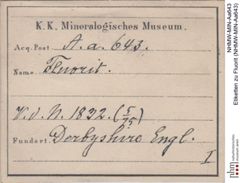 K. K. Mineralogisches Museum.
Acq. Post A. a. 643.
Name Fluorit.
V. d. N. 1832. (5/75)
Fundort. Derbyshire Engl.
I
NHMW-MIN-Aa643
Etiketten zu Fluorit (NHMW-MIN-Aa643)
nhm